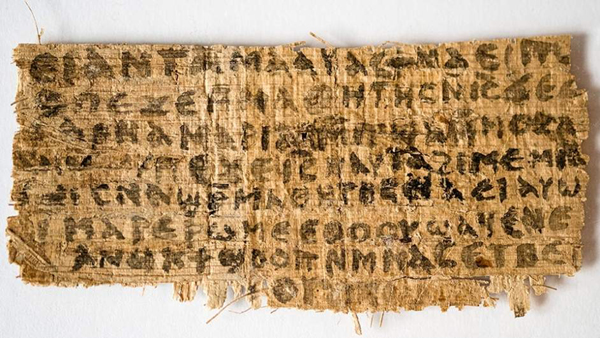 ⲉⲓ ⲁⲛ ⲧⲁⲙⲁⲁⲩ ⲁⲥϯⲛⲁⲉⲓ ⲡ
ⲡⲉϫⲉ ⲙⲙⲁⲑⲏⲧⲏⲥ ⲛⲓⲥ ϫⲉ ⲥ
ⲁⲣⲛⲁ ⲙⲁⲣⲓⲁⲙ ⲙⲡϣⲁ ⲙⲙⲟⲥ ⲁ
ⲡⲉϫⲉ ⲓⲥ ⲛⲁⲩ ⲧⲁϩⲓⲙⲉ ⲙⲛ
ⲥⲛⲁϣⲣⲙⲁⲑⲏⲧⲏⲥ ⲛⲁⲉⲓ ⲁⲩⲱ
ⲓ ⲙⲁⲣⲉⲣⲱⲙⲉ ⲉⲑⲟⲟⲩ ϣⲁϥⲉ ⲛⲉ
ⲁⲛⲟⲕ ϯϣⲟⲟⲡ ⲛⲙⲙⲁⲥ ⲉⲧⲃⲉ